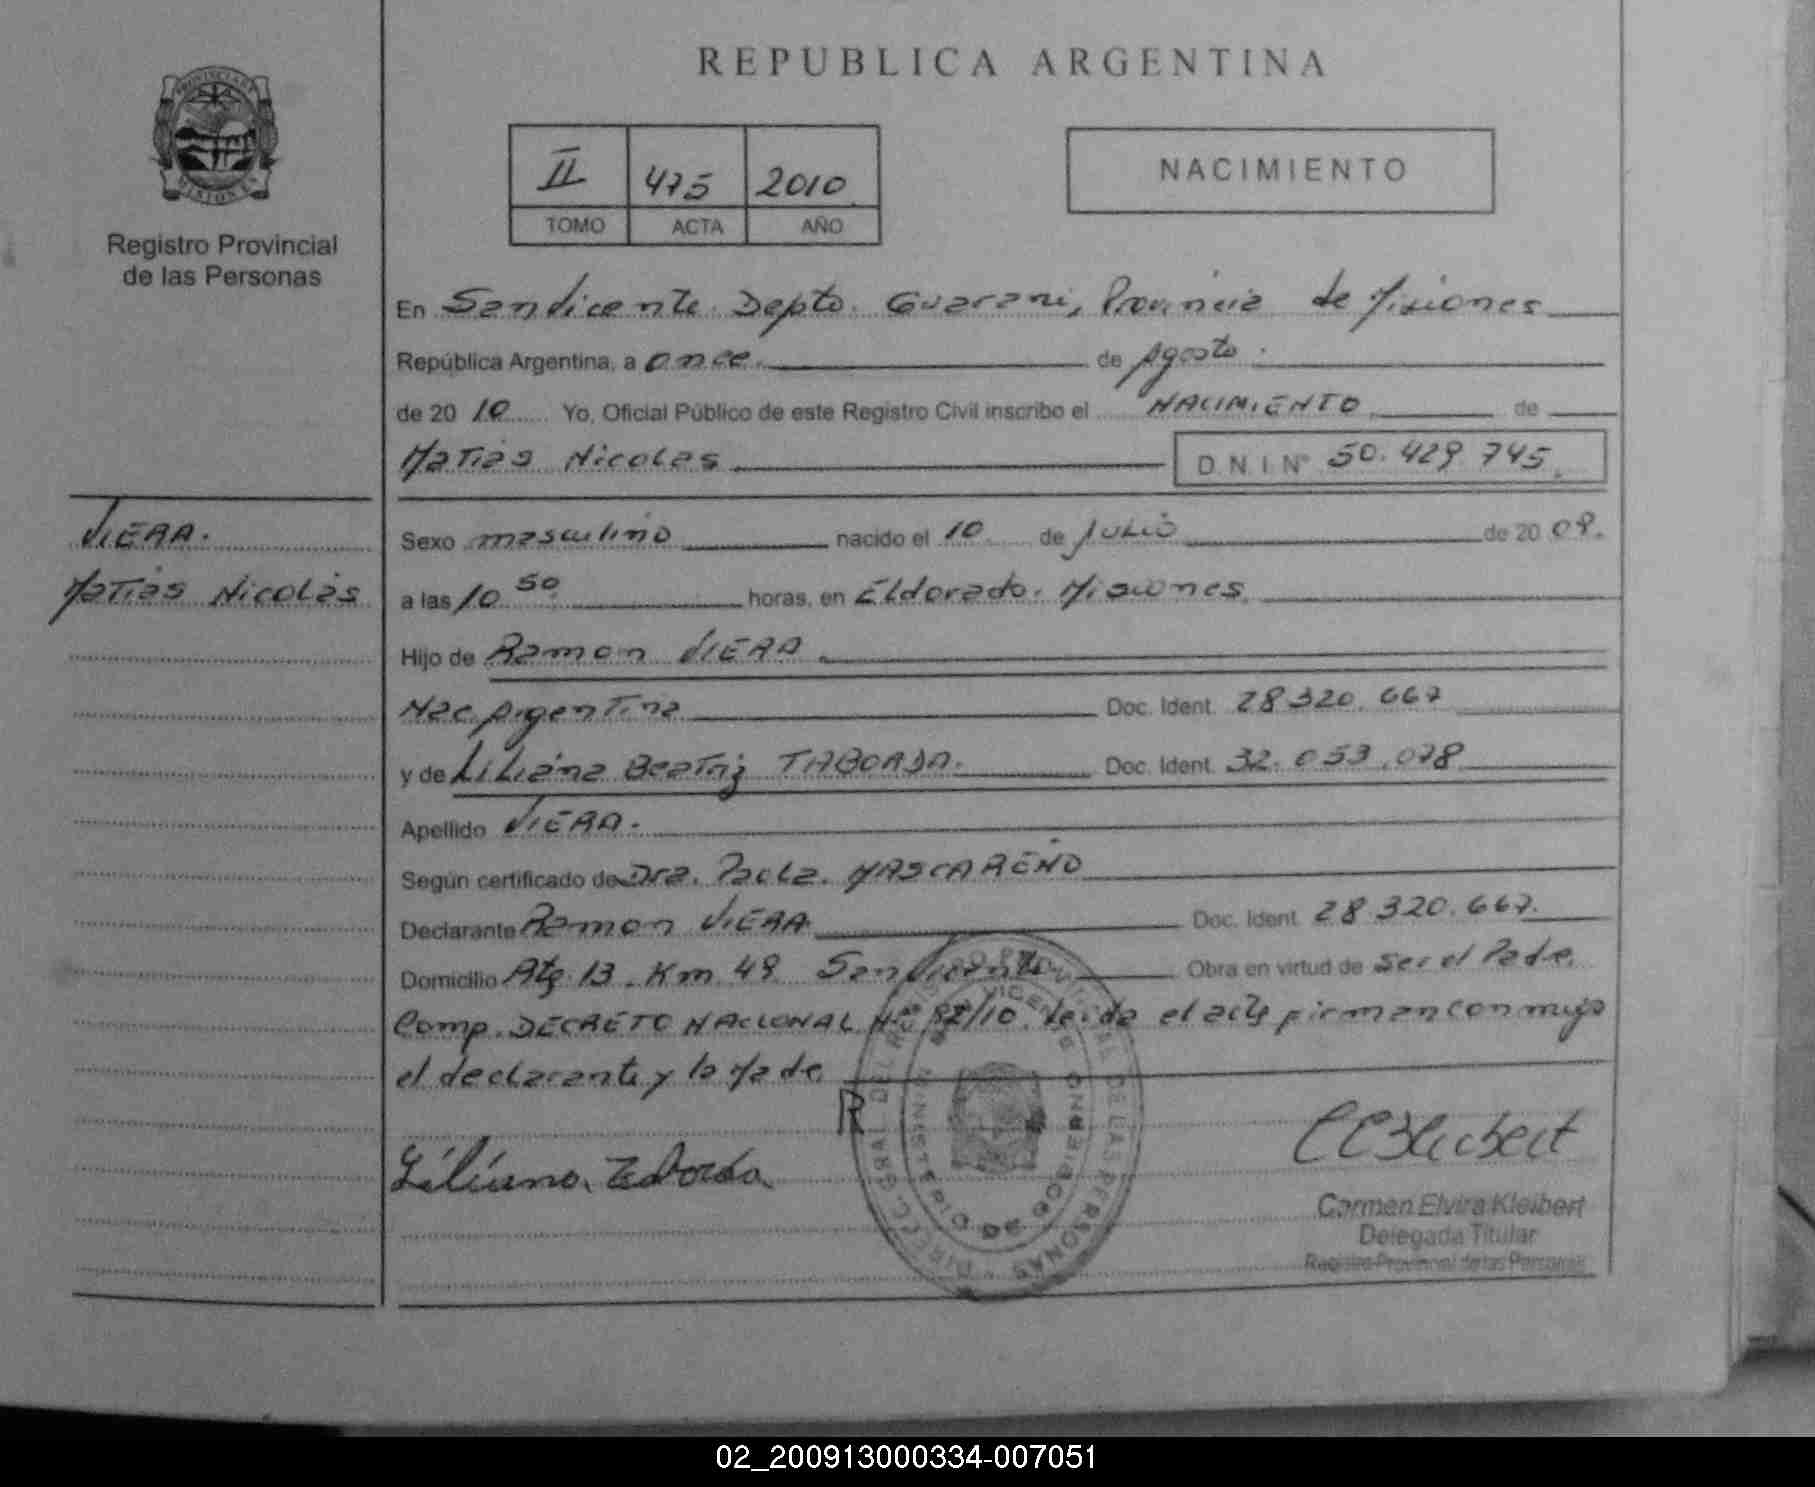 REPUBLICA ARGENTINA
PROVINCIA DE
MISIONES
Registro Provincial
de las Personas
II 475 2010
TOMO ACTA AÑO
NACIMIENTO
En San Vicente Depto. Guarani, Provincia de Misiones
República Argentina, a once de Agosto.
de 20 10 Yo, Oficial Público de este Registro Civil inscribo el NACIMIENTO de
Matias Nicolas D.N.I Nº 50.429.745.
VIERA.
Matias Nicolás
Sexo masculino nacido el 10 de Julio de 20 09.
a las 10 50 horas, en Eldorado. Misiones.
Hijo de Ramon VIERA
Nac. Argentina Doc. Ident. 28.320.667
y de Liliana Beatriz TABORDA. Doc. Ident. 32.053.078
Apellido VIERA.
Según certificado de Dra. Paola. MASCAREÑO
Declarante Ramon VIERA Doc. Ident. 28.320.667.
Domicilio Km. 49. San Vicente Obra en virtud de Ser el Padre.
Comp. DECRETO NACIONAL Nº 92/10. Leida el acta firman conmigo
el declarante y la Madre.
R
Liliana. Taborda.
Carmen Elvira Kleibert
Delegada Titular
Registro Provincial de las Personas
02_200913000334-007051